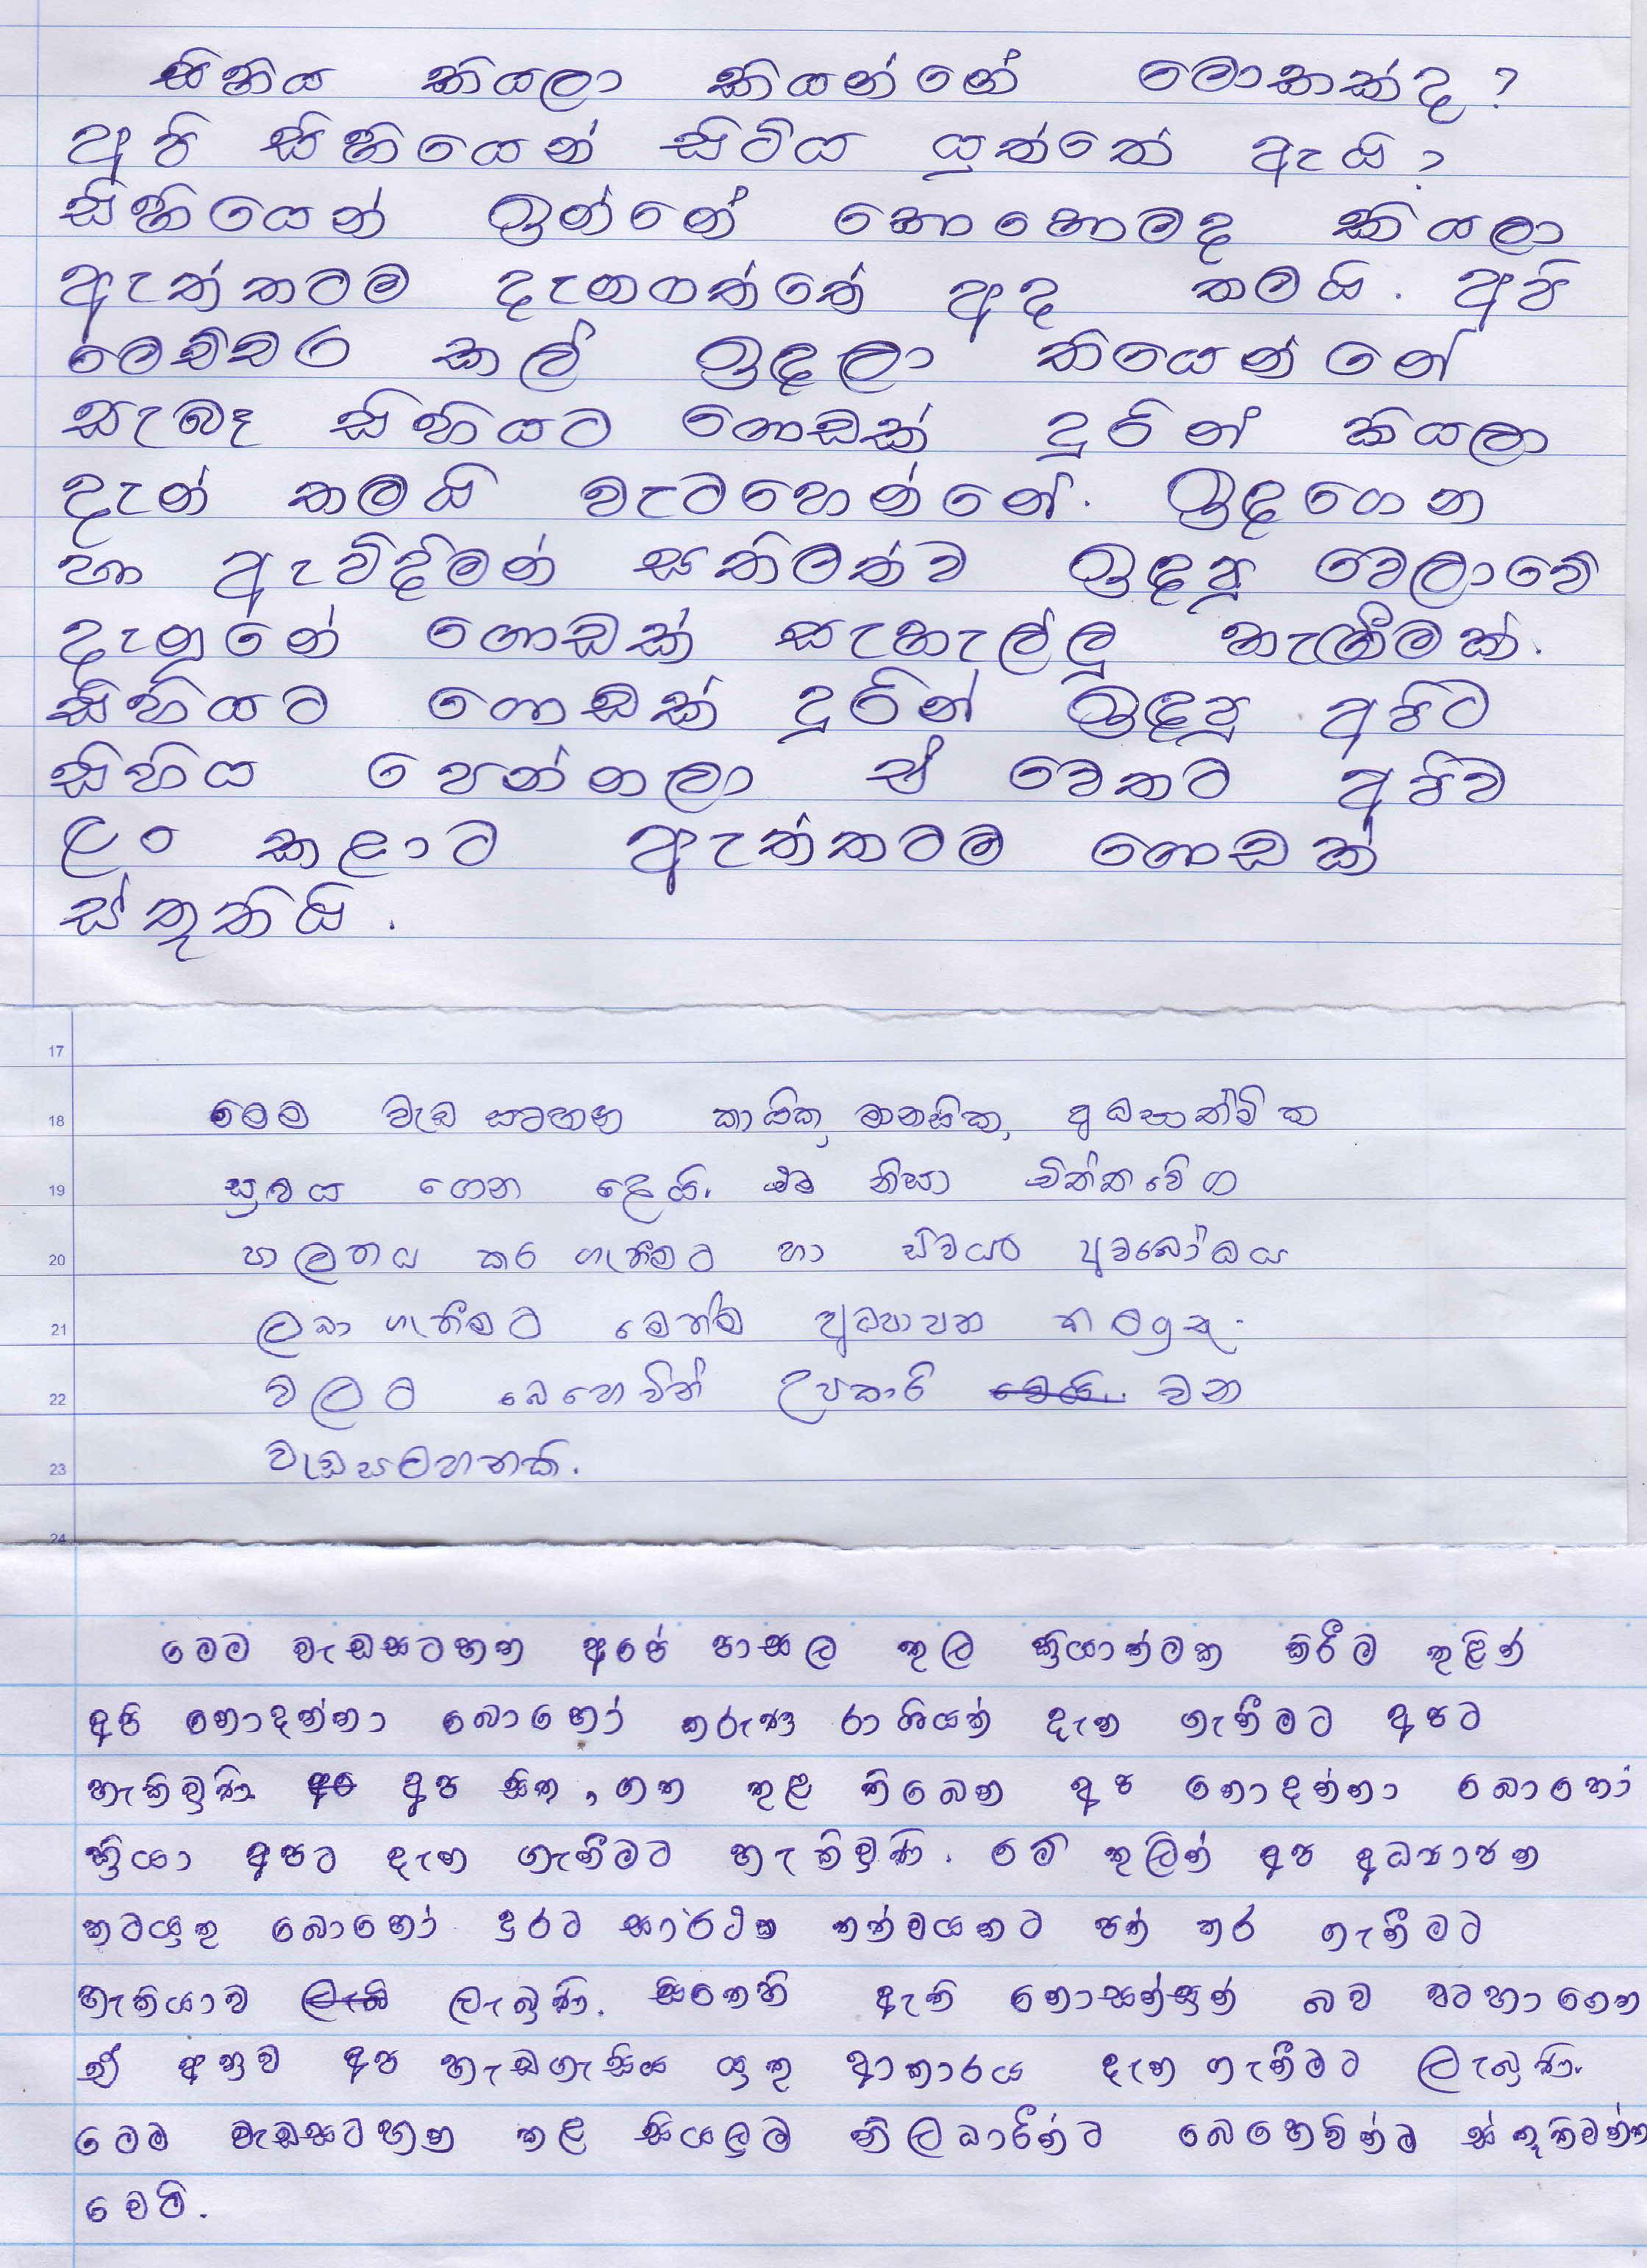 සිහිය කියලා කියන්නේ මොකක්ද ?
අපි සිහියෙන් සිටිය යුත්තේ ඇයි ?
සිහියෙන් ඉන්නේ කොහොමද කියලා
ඇත්තටම දැනගත්තේ අද තමයි. අපි
මෙච්චර කල් ඉඳලා තියෙන්නේ
සැබෑ සිහියට ගොඩක් දුරින් කියලා
දැන් තමයි වැටහෙන්නේ. ඉඳගෙන
හා ඇවිදිමන් සතිමත්ව ඉඳපු වෙලාවේ
දැනුනේ ගොඩක් සැහැල්ලු හැඟීමක්.
සිහියට ගොඩක් දුරින් ඉඳපු අපිට
සිහිය පෙන්නලා ඒ වෙතට අපිව
ලං කළාට ඇත්තටම ගොඩක්
ස්තූතියි.
17
18 මෙම වැඩ සටහන කායික, මානසික, අධ්‍යාත්මික
19 සුවය ගෙන දෙයි. එම නිසා චිත්තවේග
20 පාලනය කර ගැනීමට හා ස්වයං අවබෝධය
21 ලබා ගැනීමට මෙන්ම අධ්‍යාපන කටයුතු
22 වලට බෙහෙවින් උපකාරි වෙයි. වන
23 වැඩසටහනකි.
24
මෙම වැඩසටහන අපේ පාසල තුල ක්‍රියාත්මක කිරීම තුළින්
අපි නොදන්නා බොහෝ කරුණු රාශියක් දැන ගැනීමට අපට
හැකිවුණි. අප සිත, ගත තුළ තිබෙන අප නොදන්නා බොහෝ
ක්‍රියා අපට දැන ගැනීමට හැකිවුණි. මේ තුලින් අප අධ්‍යාපන
කටයුතු බොහෝ දුරට සාර්ථක තත්වයකට පත් කර ගැනීමට
හැකියාව ලැබි ලැබුණි. සිතෙහි ඇති නොසන්සුන් බව වටහාගෙන
ඒ අනුව අප හැඩගැසිය යුතු ආකාරය දැන ගැනීමට ලැබුණි.
මෙම වැඩසටහන කළ සියලුම නිලධාරීන්ට බෙහෙවින්ම ස්තූතිවන්ත
වෙමි.